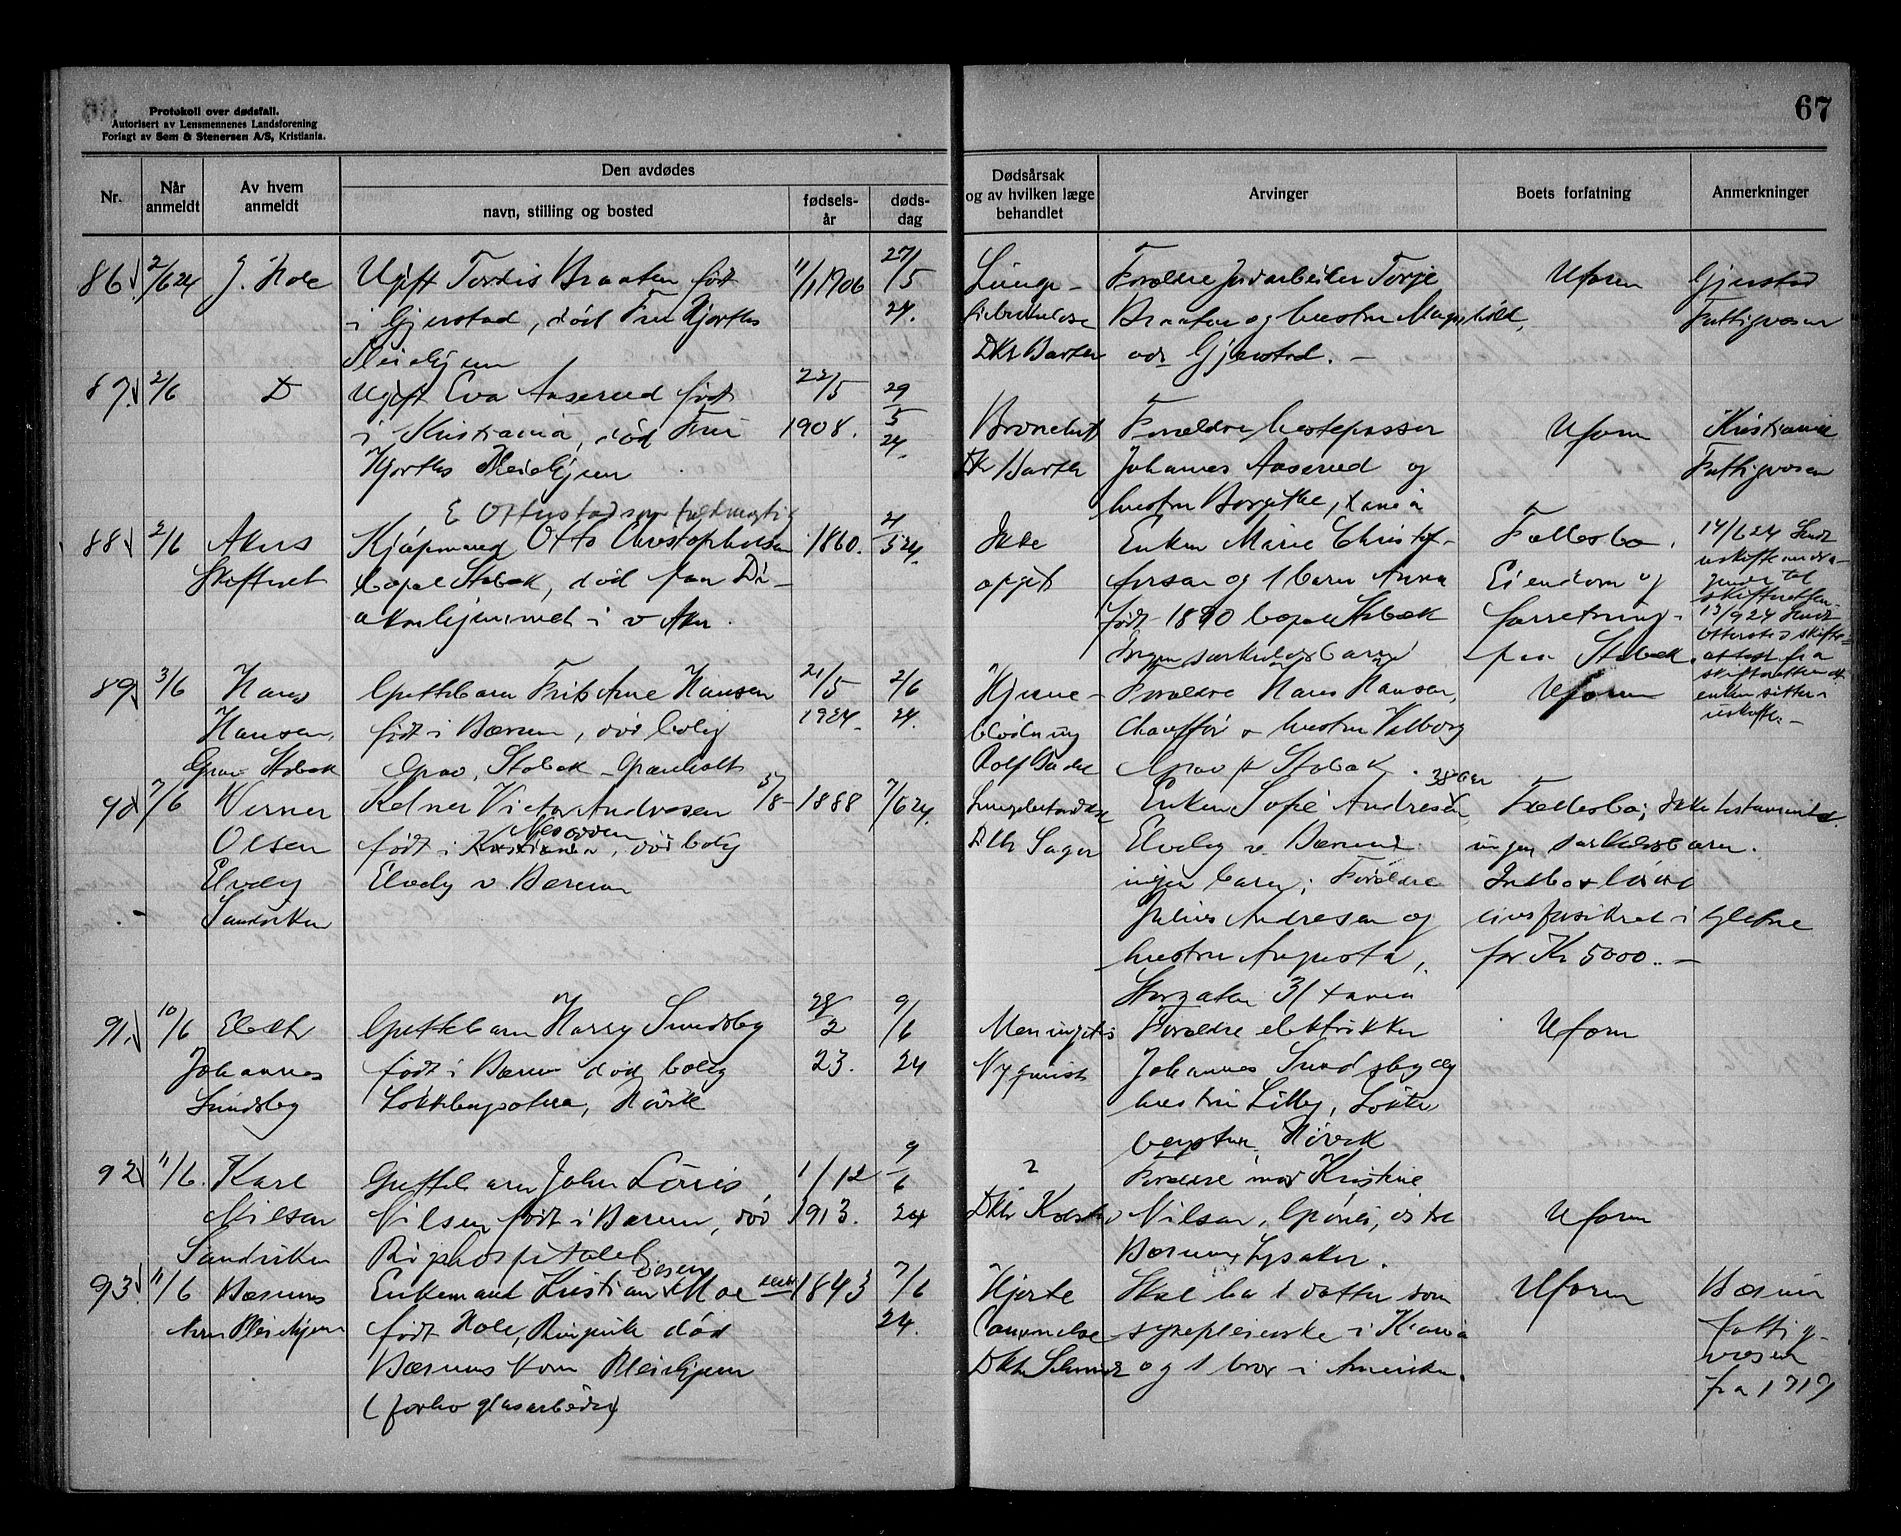 Protokoll over dødsfall.
Autorisert av Lensmennenes Landsforening
Forlagt av Sem & Stenersen A/S, Kristiania.
67
Nr.
Når anmeldt
Av hvem anmeldt
Den avdødes
navn, stilling og bosted
fødsels-år
døds-dag
Dødsårsak og av hvilken læge behandlet
Arvinger
Boets forfatning
Anmerkninger
86 2/6 24 J. Hole
Ugift Tordis Braaten født
i Gjerstad, død Fru Hjorths
Pleiehjem
11/1 1906
27/5 24.
Lunge-
tuberkulose
Dktr Barth
Forældre Jordarbeider Torje
Braaten og hustru
adr Gjerstad. -
Uform
Gjerstad
Fattigvæsen
87. 2/6 D
Ugift Eva Aaserud født
i Kristiania, død Fru
Hjorths Pleiehjem
22/5 1908.
29/5 24.
Dr Barth
Forældre hestepasser
Johannes Aaserud og
hustru Borgithe, Xania
Uform
Kristiania
Fattigvæsen
88 2/6 Akers
Skifteret
E Ottestad som fuldmægtig
Kjøpmand Otto Christophersen
bopel Stabæk, død paa Di-
akonhjemmet i v Aker.
1860.
5 24.
Ikke
opgit
Enken Marie Christof-
fersen og 1 barn Anna
født 1890 bopel Stabæk
Ingen særkuldsbarn
Fællesbo.
Eiendom og
forretning
paa Stabæk.
14/6 24 Sendt
til
skifteretten.
13/9 24 Sendt
skifte-
attest fra
skifteretten at
enken sitter i
uskifte. -
89 3/6 Hans
Hansen,
Grav Stabæk
Guttebarn Frits Arne Hansen
født i Bærum, død bolig
Grav, Stabæk - Granholt
21/5 1924.
2/6 24.
Hjerne-
blødning
Forældre Hans Hansen,
chauffør o hustru Valborg
Grav pr Stabæk.
Uform
90 7/6 Werner
Olsen
Elvely
Sandviken
Kelner Victor Andresen
født i Kristiania, død bolig
Nesodden
Elvely v. Bærum
5/8 - 1888
7/6 24.
Dktr Sager
Enken Sofie Andresen
38 år
Elvely v. Bærum
ingen barn; Forældre
Julius Andresen og
hustru Augusta,
Storgaten 31 Xania
Fællesbo; Ikke testament
ingen særkuldsbarn.
Indbo & løsøre
livsforsikret i Gjefne
for Kr 5000. -
91. 10/6 Elektr
Johannes
Sundsby
Guttebarn Harry Sundsby
født i Bærum død bolig
Høvik
28/2 23.
9/6 24
Meningitis
Nyquist
Forældre elektrikker
Johannes Sundsby og
hustru Lilly, Løkke
Høvik
Uform
92 11/6. Karl
Nilsen
Sandviken
Guttebarn John Louis
Nilsen født i Bærum, død
Rigshospitalet
1/12 1913.
9/6 24
?
Forældre mor Kristine
Nilsen, Grønli, østre
Bærum, Lysaker.
Uform
93. 11/6 Bærums
kom Pleiehjem
Enkemand Kristian Moe
Olsen
født Hole, Ringerike død
Bærums kom Pleiehjem
(forhv glasarbeider)
1843
7/6 24.
Hjerte
Lammelse
Skal ha 1 datter som
sykepleierske i Kr.ania
og 1 bror i Amerika.
Uform
Bærum
fattig-
væsen
fra 1919